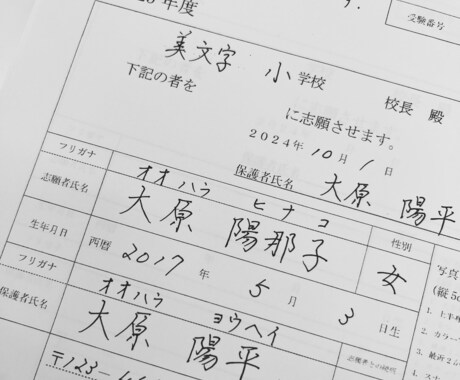 年度
受験番号
美文字 小学校 校長 殿
下記の者を
に志願させます。
2024年 10月 1日
保護者氏名 大原 陽平
フリガナ オオハラ ヒナコ
志願者氏名 大原 陽那子 性別 女
生年月日 西暦 2017年 5月 3日生
フリガナ オオハラ ヨウヘイ
保護者氏名 大原 陽平
〒123-
写真
(縦5c
1. 上半
2. カラー
3. 最近2か
4. スナ